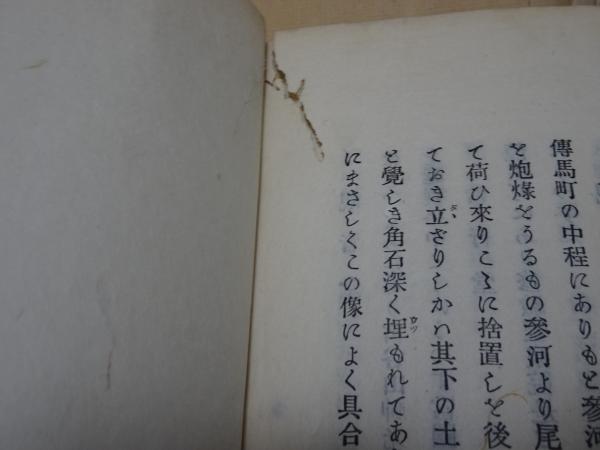 傳馬町の中程にありもと參河
を炮烙をうるもの參河より尾
て荷ひ來りこゝに捨置しを後
ておき立ざりしかハ其下の土
と覺しき角石深く埋もれてあ
にまさしくこの像によく具合